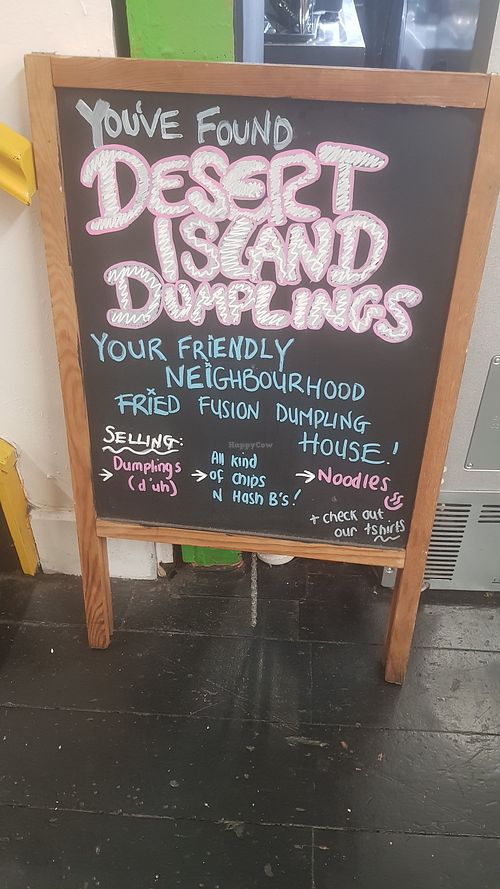 YOU'VE FOUND
DESERT
ISLAND
DUMPLINGS
YOUR FRiENDLY
NEiGHBOURHOOD
FRIED FUSION DUMPLING
HOUSE!
SELLING:
→ Dumplings
(d'uh)
→ All kind
of chips
N Hash B's!
→ Noodles
+ check out
our tshirts
HappyCow